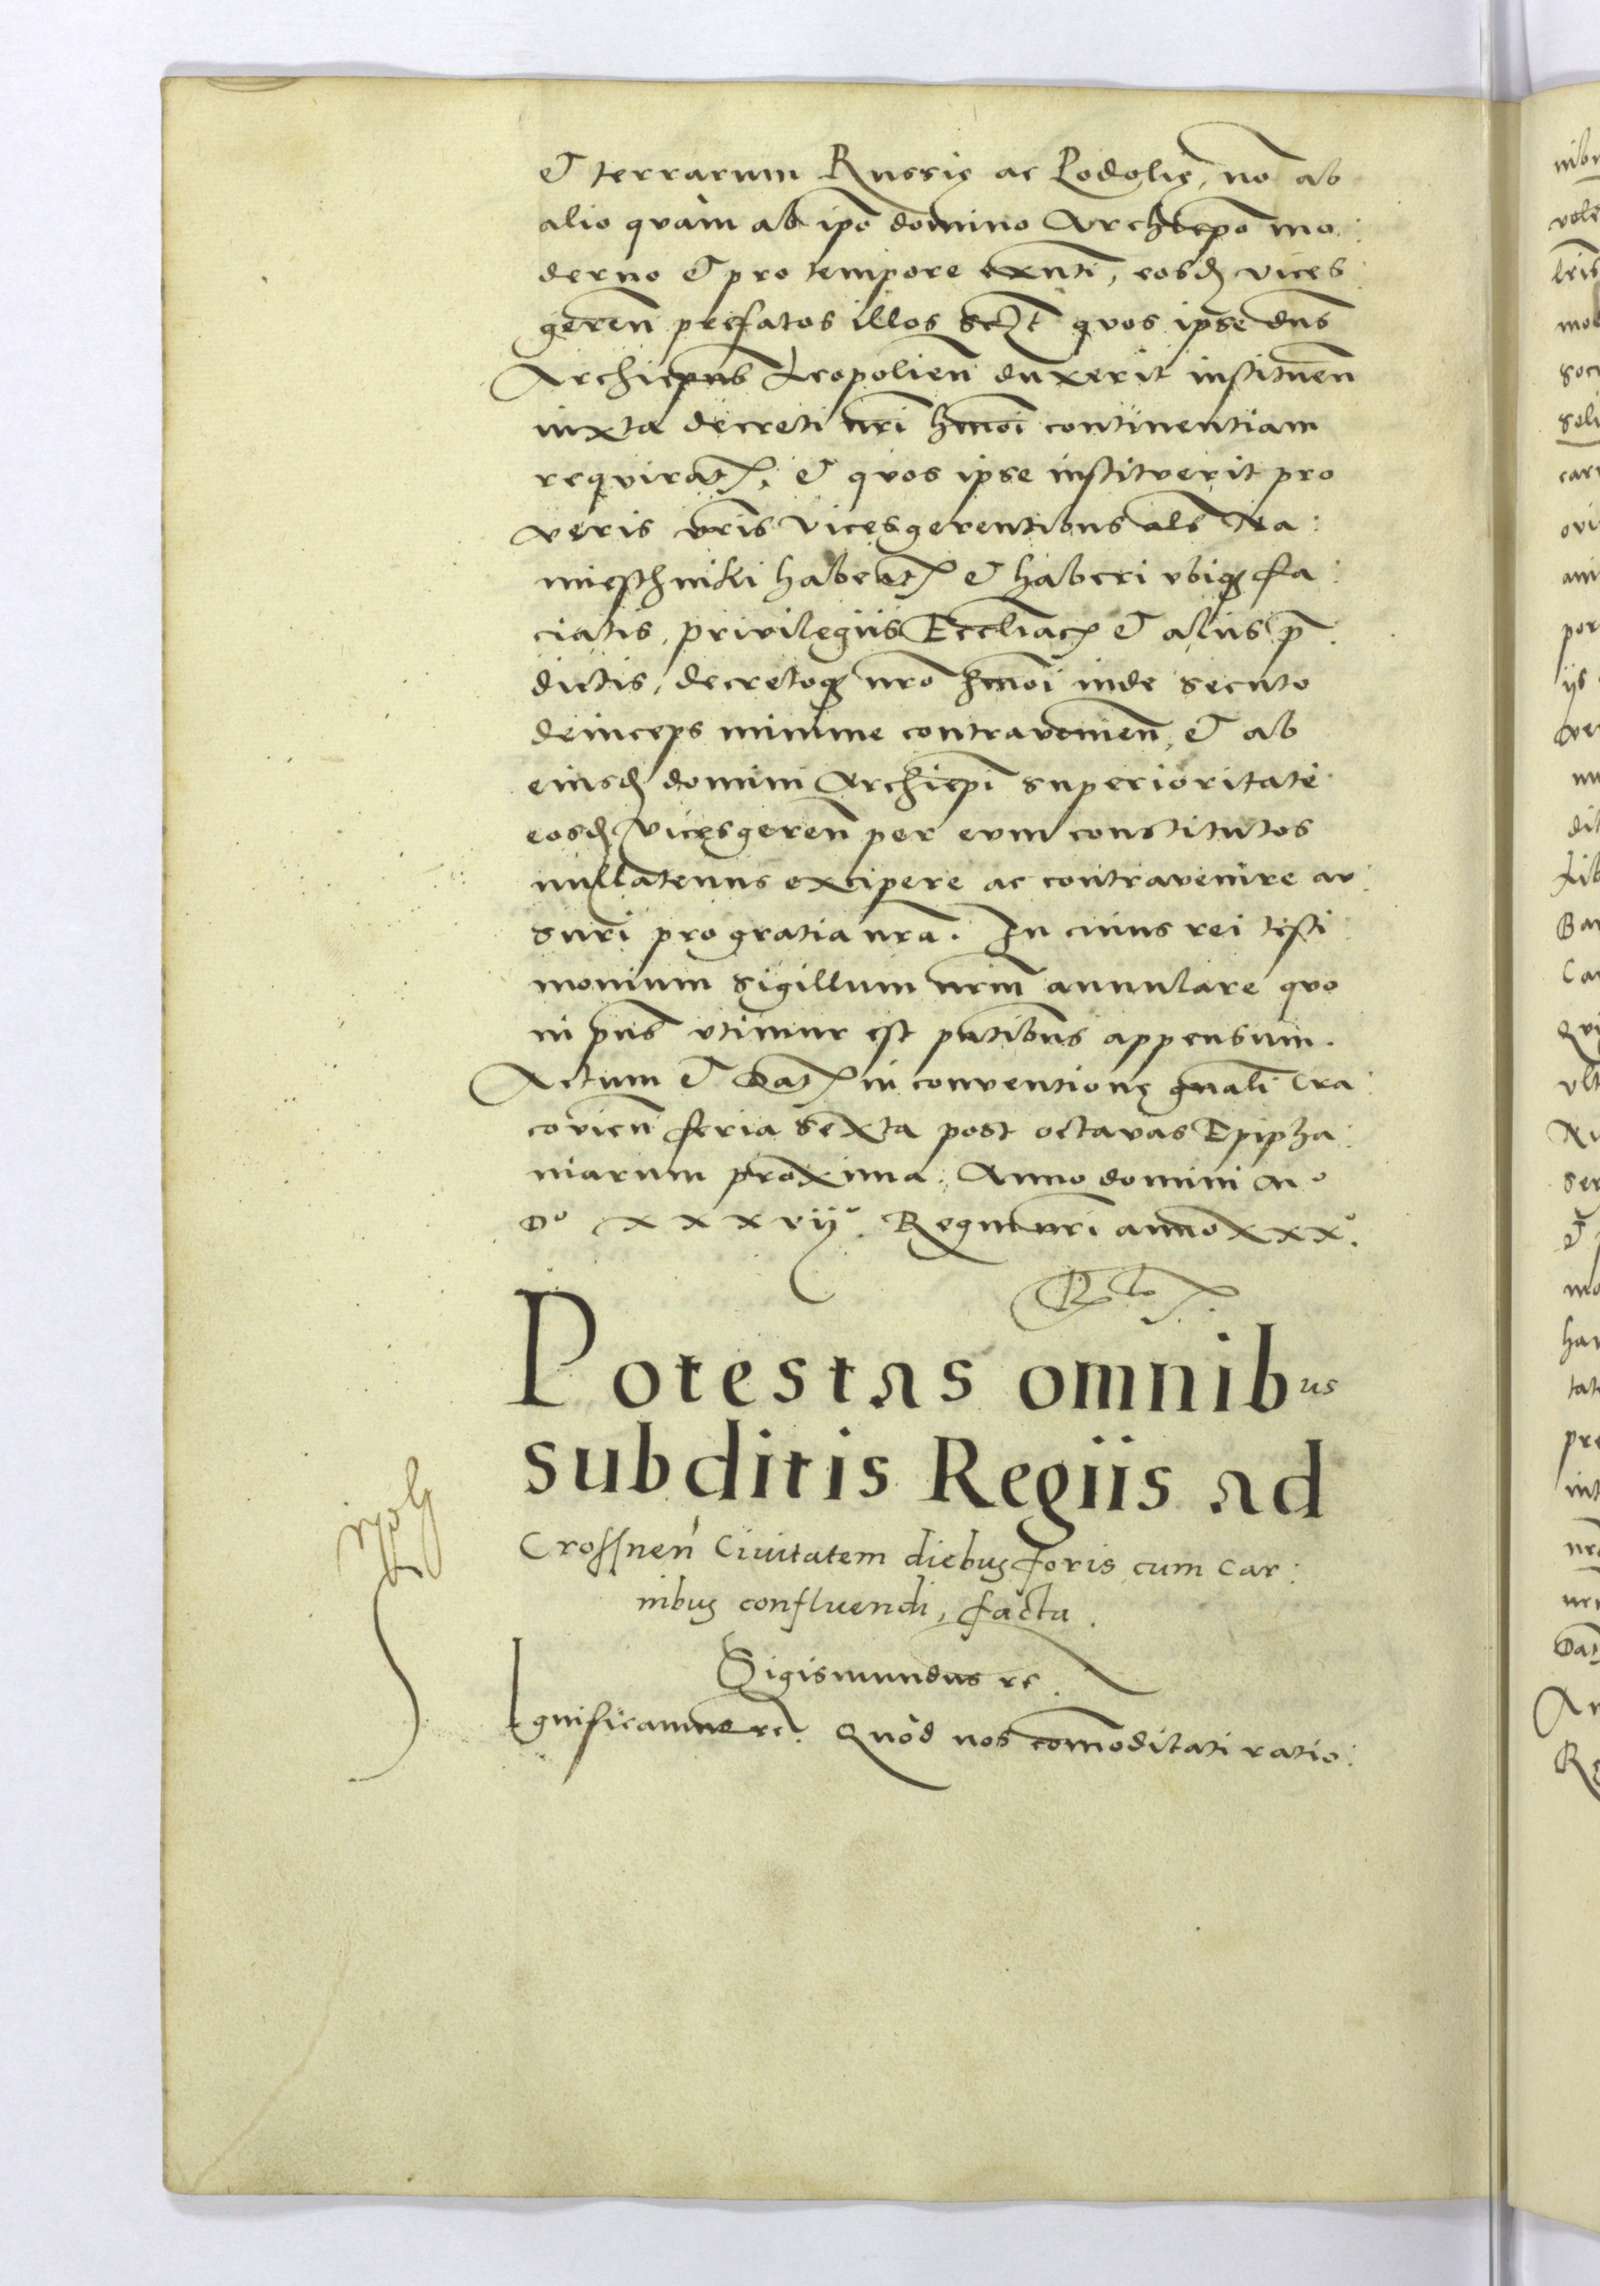 et terrarum Russię ac Podolię, nō ab
alio quàm ab ipō domino Archiepō mo:
derno et pro tempore exn̄ti, eosd vices
geren̄ prefatos illos scꝫt quos ipse dn̄s
Archiepūs Leopolien̄ duxerit instituen̄
iuxta decreti nr̄i hmōi continentiam
requiratꝭ, et quos ipse instituerit pro
veris vr̄is vicesgerentibus als̄ Na:
miesthniki habeatꝭ et haberi vbiqꝫ fa:
ciatis, privilegiis Eccliāꝝ et aliis p̄
dictis, decretoqꝫ nrō hmōi inde secuto
deinceps minime contravenien̄, et ab
eiusd domini Archiepī superioritate
eosd vicesgeren̄ per eum constitutos
nullatenus excipere ac contravenire au:
suri pro gratia nrā. In cuius rei testi
monium sigillum nrm̄ annulare quo
in pn̄s vtimur est pn̄tibus appensum.
Actum et Datꝭ in conventione gn̄ali Cra:
covien̄ feria sexta post octavas Epipha:
niarum proxima: Anno domini Mo
Do xxxvijo. Regni nr̄i anno xxxo.
Potestas omnibus
subditis Regiis ad
Crossnen̄ Civitatem diebus foris cum Car:
nibus confluendi, facta.
Sigismundus rc.
Ignificamus rc. Quòd nos com̄oditati ratio: